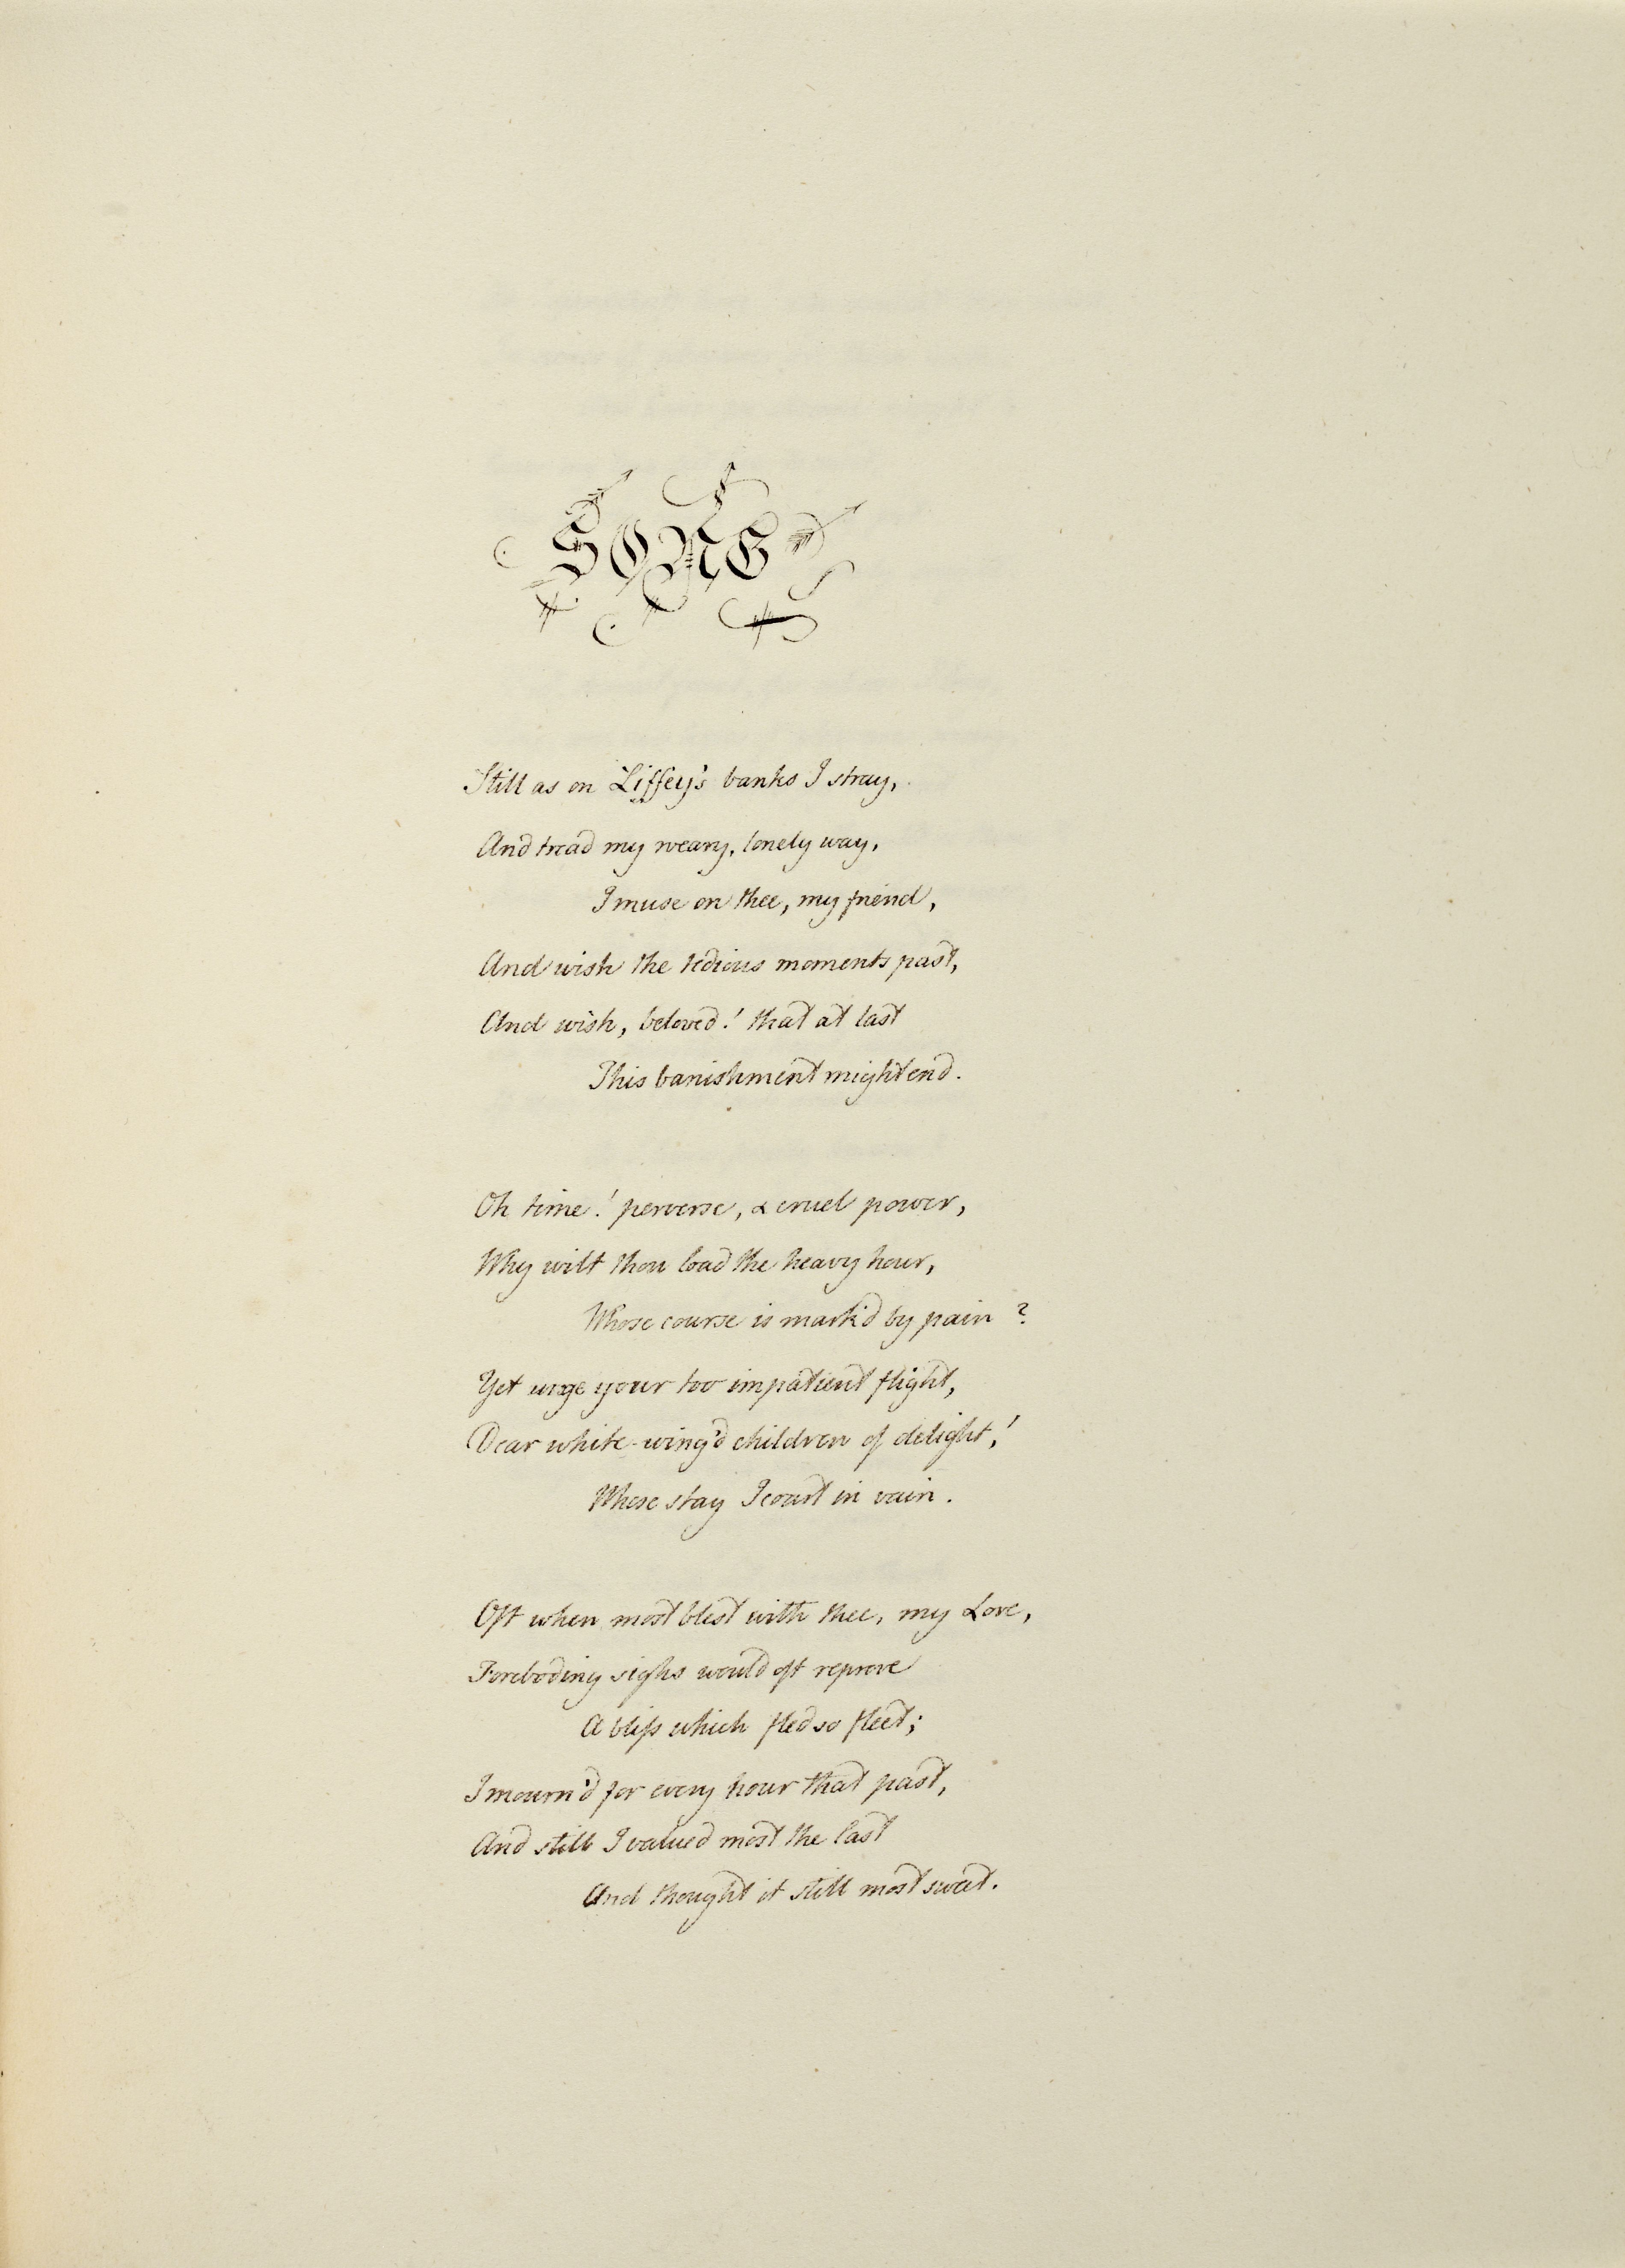 SONG
Still as on Liffey's banks I stray,
And tread my weary, lonely way,
I muse on thee, my friend,
And wish the tedious moments past,
And wish, beloved! that at last
This banishment might end.
Oh time! perverse, & cruel power,
Why wilt thou load the heavy hour,
Whose course is mark'd by pain?
Yet urge your too impatient flight,
Dear white-wing'd children of delight,!
Whose stay I court in vain.
Oft when most blest with thee, my Love,
Foreboding sighs would oft reprove
A bliſs which fled so fleet;
I mourn'd for every hour that past,
And still I valued most the last
And thought it still most sweet.